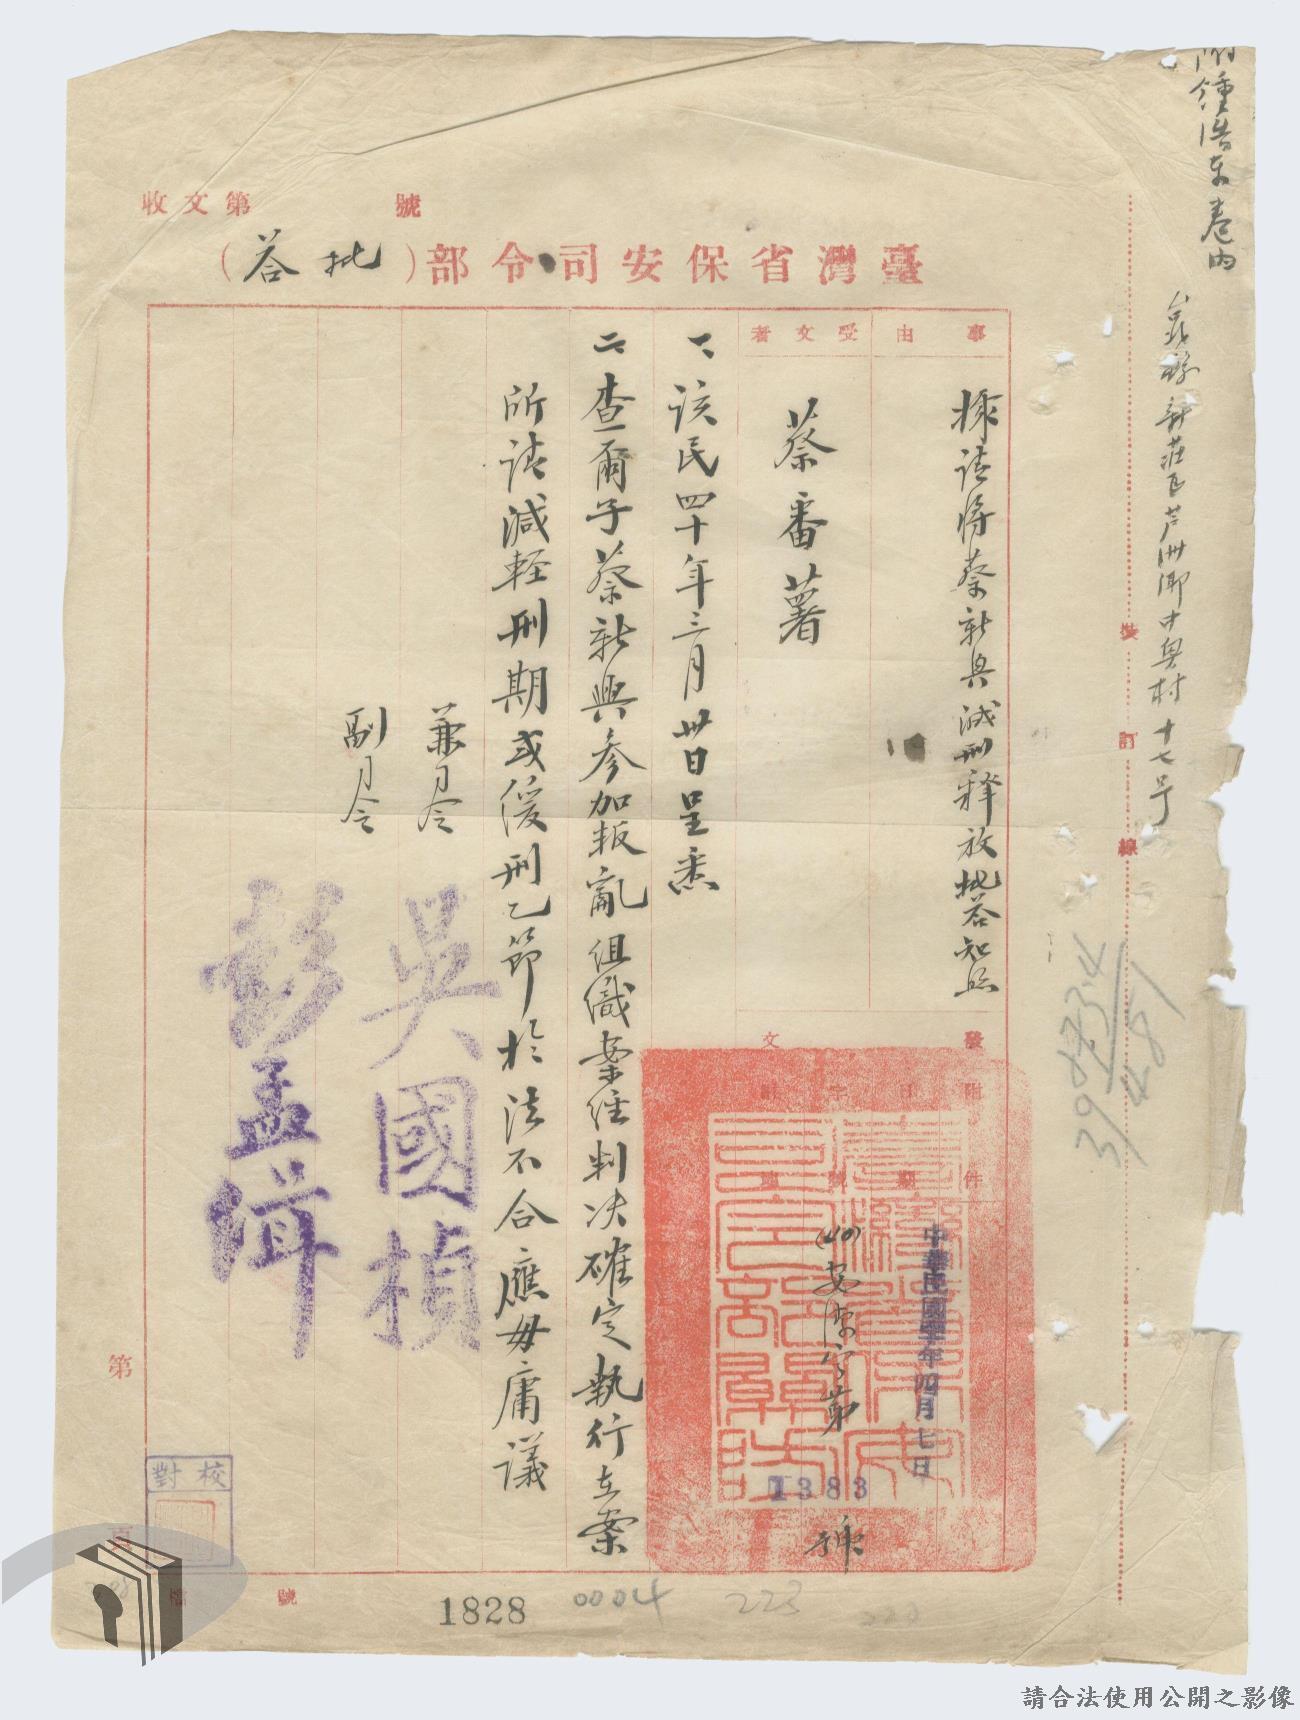 附鍾浩東卷內
台北縣新莊區芦洲鄉中奥村十七号
裝訂線
收文第 號
臺灣省保安司令部（批答）
事由
據請將蔡新興減刑釋放批答知照
受文者
蔡番薯
發文
附件
日期
字號
中華民國肆拾年四月七日
(40)安潔字第1383號
一、該民四十年三月卅日呈悉
二、查爾子蔡新興參加叛亂組織案经判决確定執行在案
所請減輕刑期或缓刑乙節於法不合應毋庸議
兼司令
吳國楨
副司令
彭孟緝
校對
第 頁
號
1828
0004
223
220
3973.4/481
請合法使用公開之影像